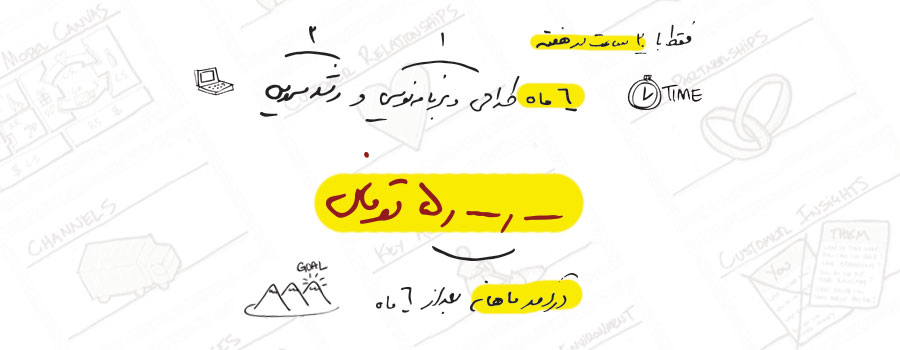 MODEL CANVAS
RELATIONSHIPS
PARTNERSHIPS
فقط با ۲۰ ساعت در هفته
۱
۲
۶ ماه طراحی و برنامه نویسی و رشد سرویس
TIME
۵,—,— تومان
CHANNELS
KEY
CUSTOMER INSIGHTS
THEM
YOU
GOAL
درآمد ماهانه بعد از ۶ ماه
ENVIRONMENT